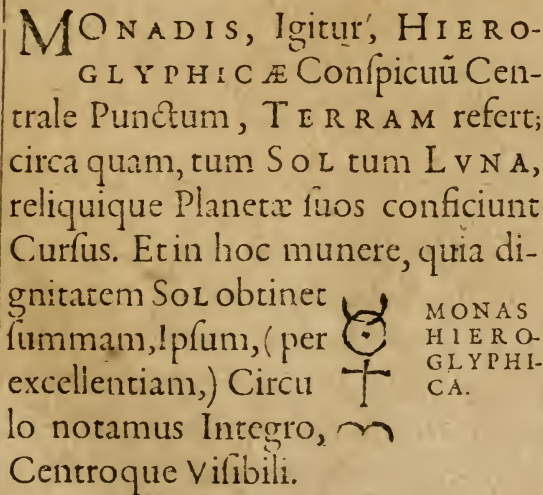 MONADIS, Igitur, HIERO-
GLYPHICÆ Conſpicuũ Cen-
trale Punctum, TERRAM refert;
circa quam, tum SOL tum LVNA,
reliquique Planetæ ſuos conficiunt
Curſus. Et in hoc munere, quia di-
gnitatem SOL obtinet
ſummam, Ipſum, (per
excellentiam,) Circu
lo notamus Integro,
Centroque Viſibili.
MONAS
HIERO-
GLYPHI-
CA.